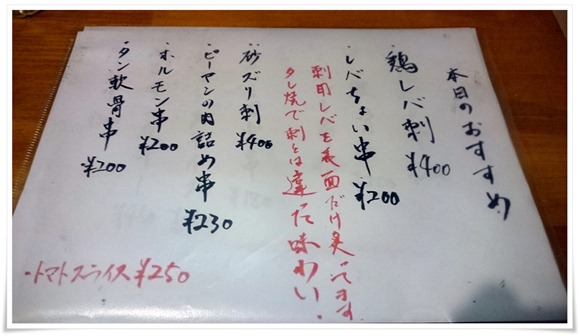 本日のおすすめ
・鶏レバ刺 ¥400
・レバちょい串 ¥200
刺用レバを表面だけ炙ってます。
タレ焼で刺とは違った味わい。
・砂ズリ刺 ¥400
・ピーマンの肉詰め串 ¥230
・ホルモン串 ¥200
・タン軟骨串 ¥200
・トマトスライス ¥250